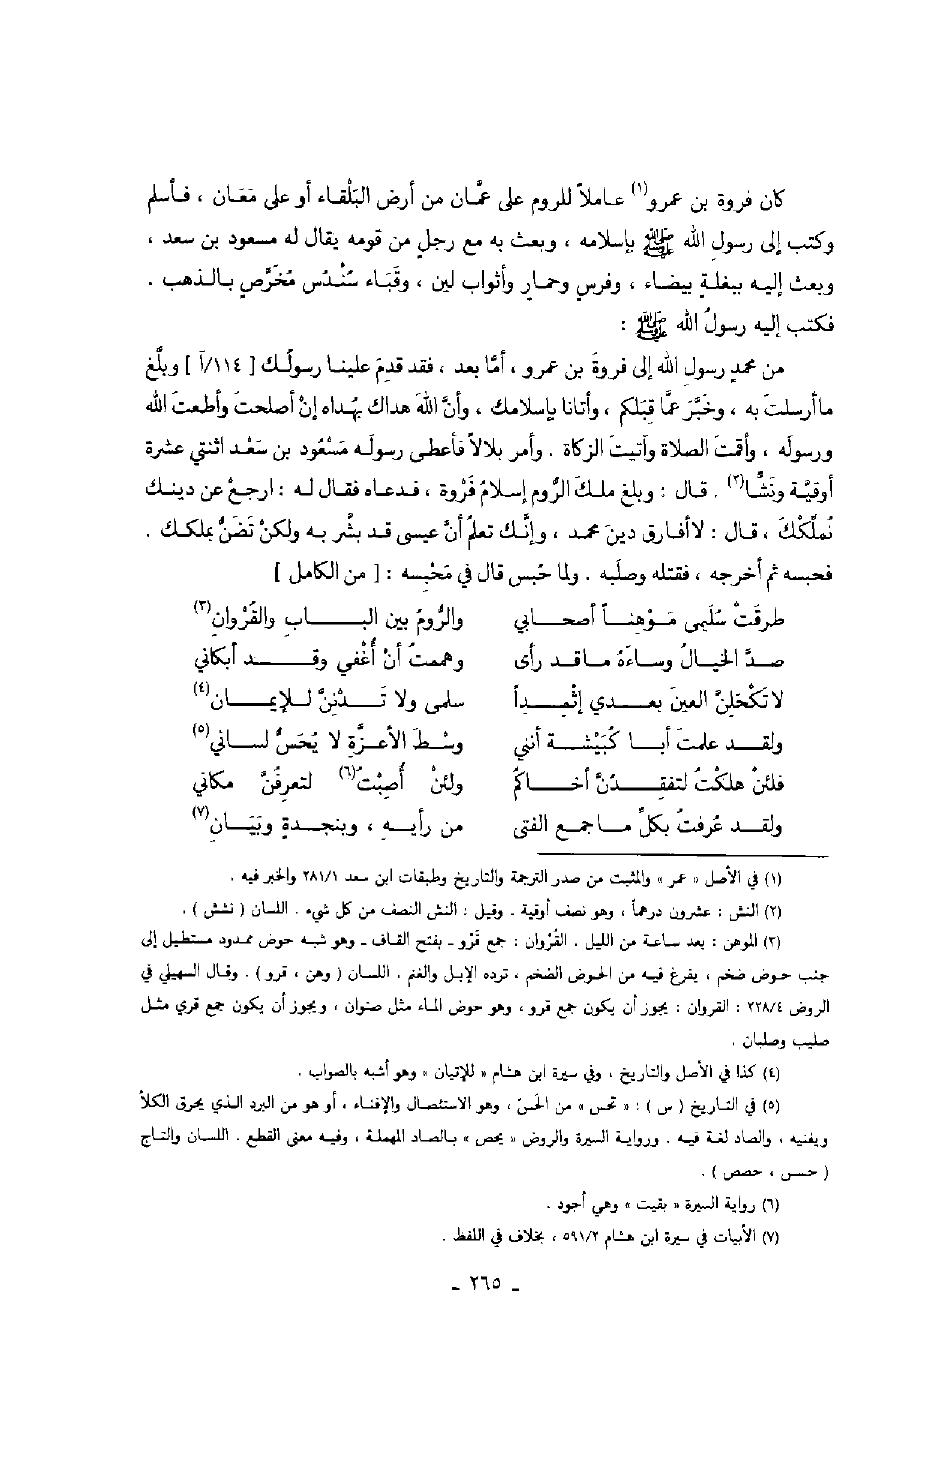 كان فروة بن عمرو(١) عاملاً للروم على عمَّان من أرض البَلْقاء أو على مَعَان ، فأسلم
وكتب إلى رسول الله ﷺ بإسلامه ، وبعث به مع رجلٍ من قومه يقال له مسعود بن سعد ،
وبعث إليه ببغلةٍ بيضاء ، وفرس وحمارٍ وأثواب لين ، وقَبَاء سُنْدُس مُخَرَّصٍ بالذهب .
فكتب إليه رسولُ الله ﷺ :
من محمدٍ رسول الله إلى فروةَ بن عمرو ، أمَّا بعد ، فقد قدِمَ علينا رسولُك [ ١١٤/آ ] وبلَّغ
ما أرسلتَ به ، وخَبَّرَ عمَّا قِبَلكم ، وأتانا بإسلامك ، وأنَّ اللهَ هداك بهُداه إنْ أصلحتَ وأطعتَ الله
ورسولَه ، وأقمتَ الصلاة وآتيتَ الزكاة . وأمر بلالاً فأعطى رسولَه مَسْعُود بن سَعْد اثنتي عشرة
أوقيَّة ونَشَّا(٢) . قال : وبلغ ملكَ الرُّوم إسلامُ فَرْوة ، فدعاه فقال له : ارجعْ عن دينك
نُملِّكْكَ ، قال : لا أفارق دينَ محمد ، وإنَّك تعلمُ أنَّ عيسى قد بشَّر به ولكنْ تَضَنُّ بملكك .
فحبسه ثم أخرجه ، فقتله وصلبه . ولما حُبس قال في مَحْبِسه : [ من الكامل ]
طرقَتْ سُلَيمى مَوْهِناً أصحابي والرُّومُ بين البابِ والقَرْوانِ(٣)
صدَّ الخيالُ وساءَهُ ما قد رأى وهممتُ أنْ أُغْفي وقد أبكاني
لا تَكْحَلِنَّ العينَ بعدي إثْمِداً سلمى ولا تَدْنِنَّ للإيمانِ(٤)
ولقد علمتَ أبا كُبَيْشةَ أنني وسْطَ الأعزَّةِ لا يُحَسُّ لساني(٥)
فلئنْ هلكْتُ لتفقِدُنَّ أخاكمُ ولئنْ أُصِبْتُ(٦) لتعرِفُنَّ مكاني
ولقد عُرِفتُ بكلِّ ما جمع الفتى من رأيه ، وبنجدةٍ وبَيَانِ(٧)
(١) في الأصل « عمر » والمثبت من صدر الترجمة والتاريخ وطبقات ابن سعد ٢٨١/١ والخبر فيه .
(٢) النش : عشرون درهماً ، وهو نصف أوقية . وقيل : النش النصف من كل شيء . اللسان ( نشش ) .
(٣) الموهن : بعد ساعة من الليل . القَرْوان : جمع قَرْو ـ بفتح القاف ـ وهو شبه حوض ممدود مستطيل إلى
جنب حوض ضخم ، يفرغ فيه من الحوض الضخم ، ترده الإبل والغنم . اللسان ( وهن ، قرو ) . وقال السهيلي في
الروض ٢٢٨/٤ : القروان : يجوز أن يكون جمع قرو ، وهو حوض الماء مثل صنوان ، ويجوز أن يكون جمع قري مثل
صليب وصلبان .
(٤) كذا في الأصل والتاريخ ، وفي سيرة ابن هشام « للإتيان » وهو أشبه بالصواب .
(٥) في التاريخ ( س ) : « تحس » من الحَسّ ، وهو الاستئصال والإفناء ، أو هو من البرد الذي يحرق الكلأ
ويفنيه ، والصاد لغة فيه . ورواية السيرة والروض « يحص » بالصاد المهملة ، وفيه معنى القطع . اللسان والتاج
( حسس ، حصص ) .
(٦) رواية السيرة « بقيت » وهي أجود .
(٧) الأبيات في سيرة ابن هشام ٥٩١/٢ ، بخلاف في اللفظ .
ـ ٢٦٥ ـ